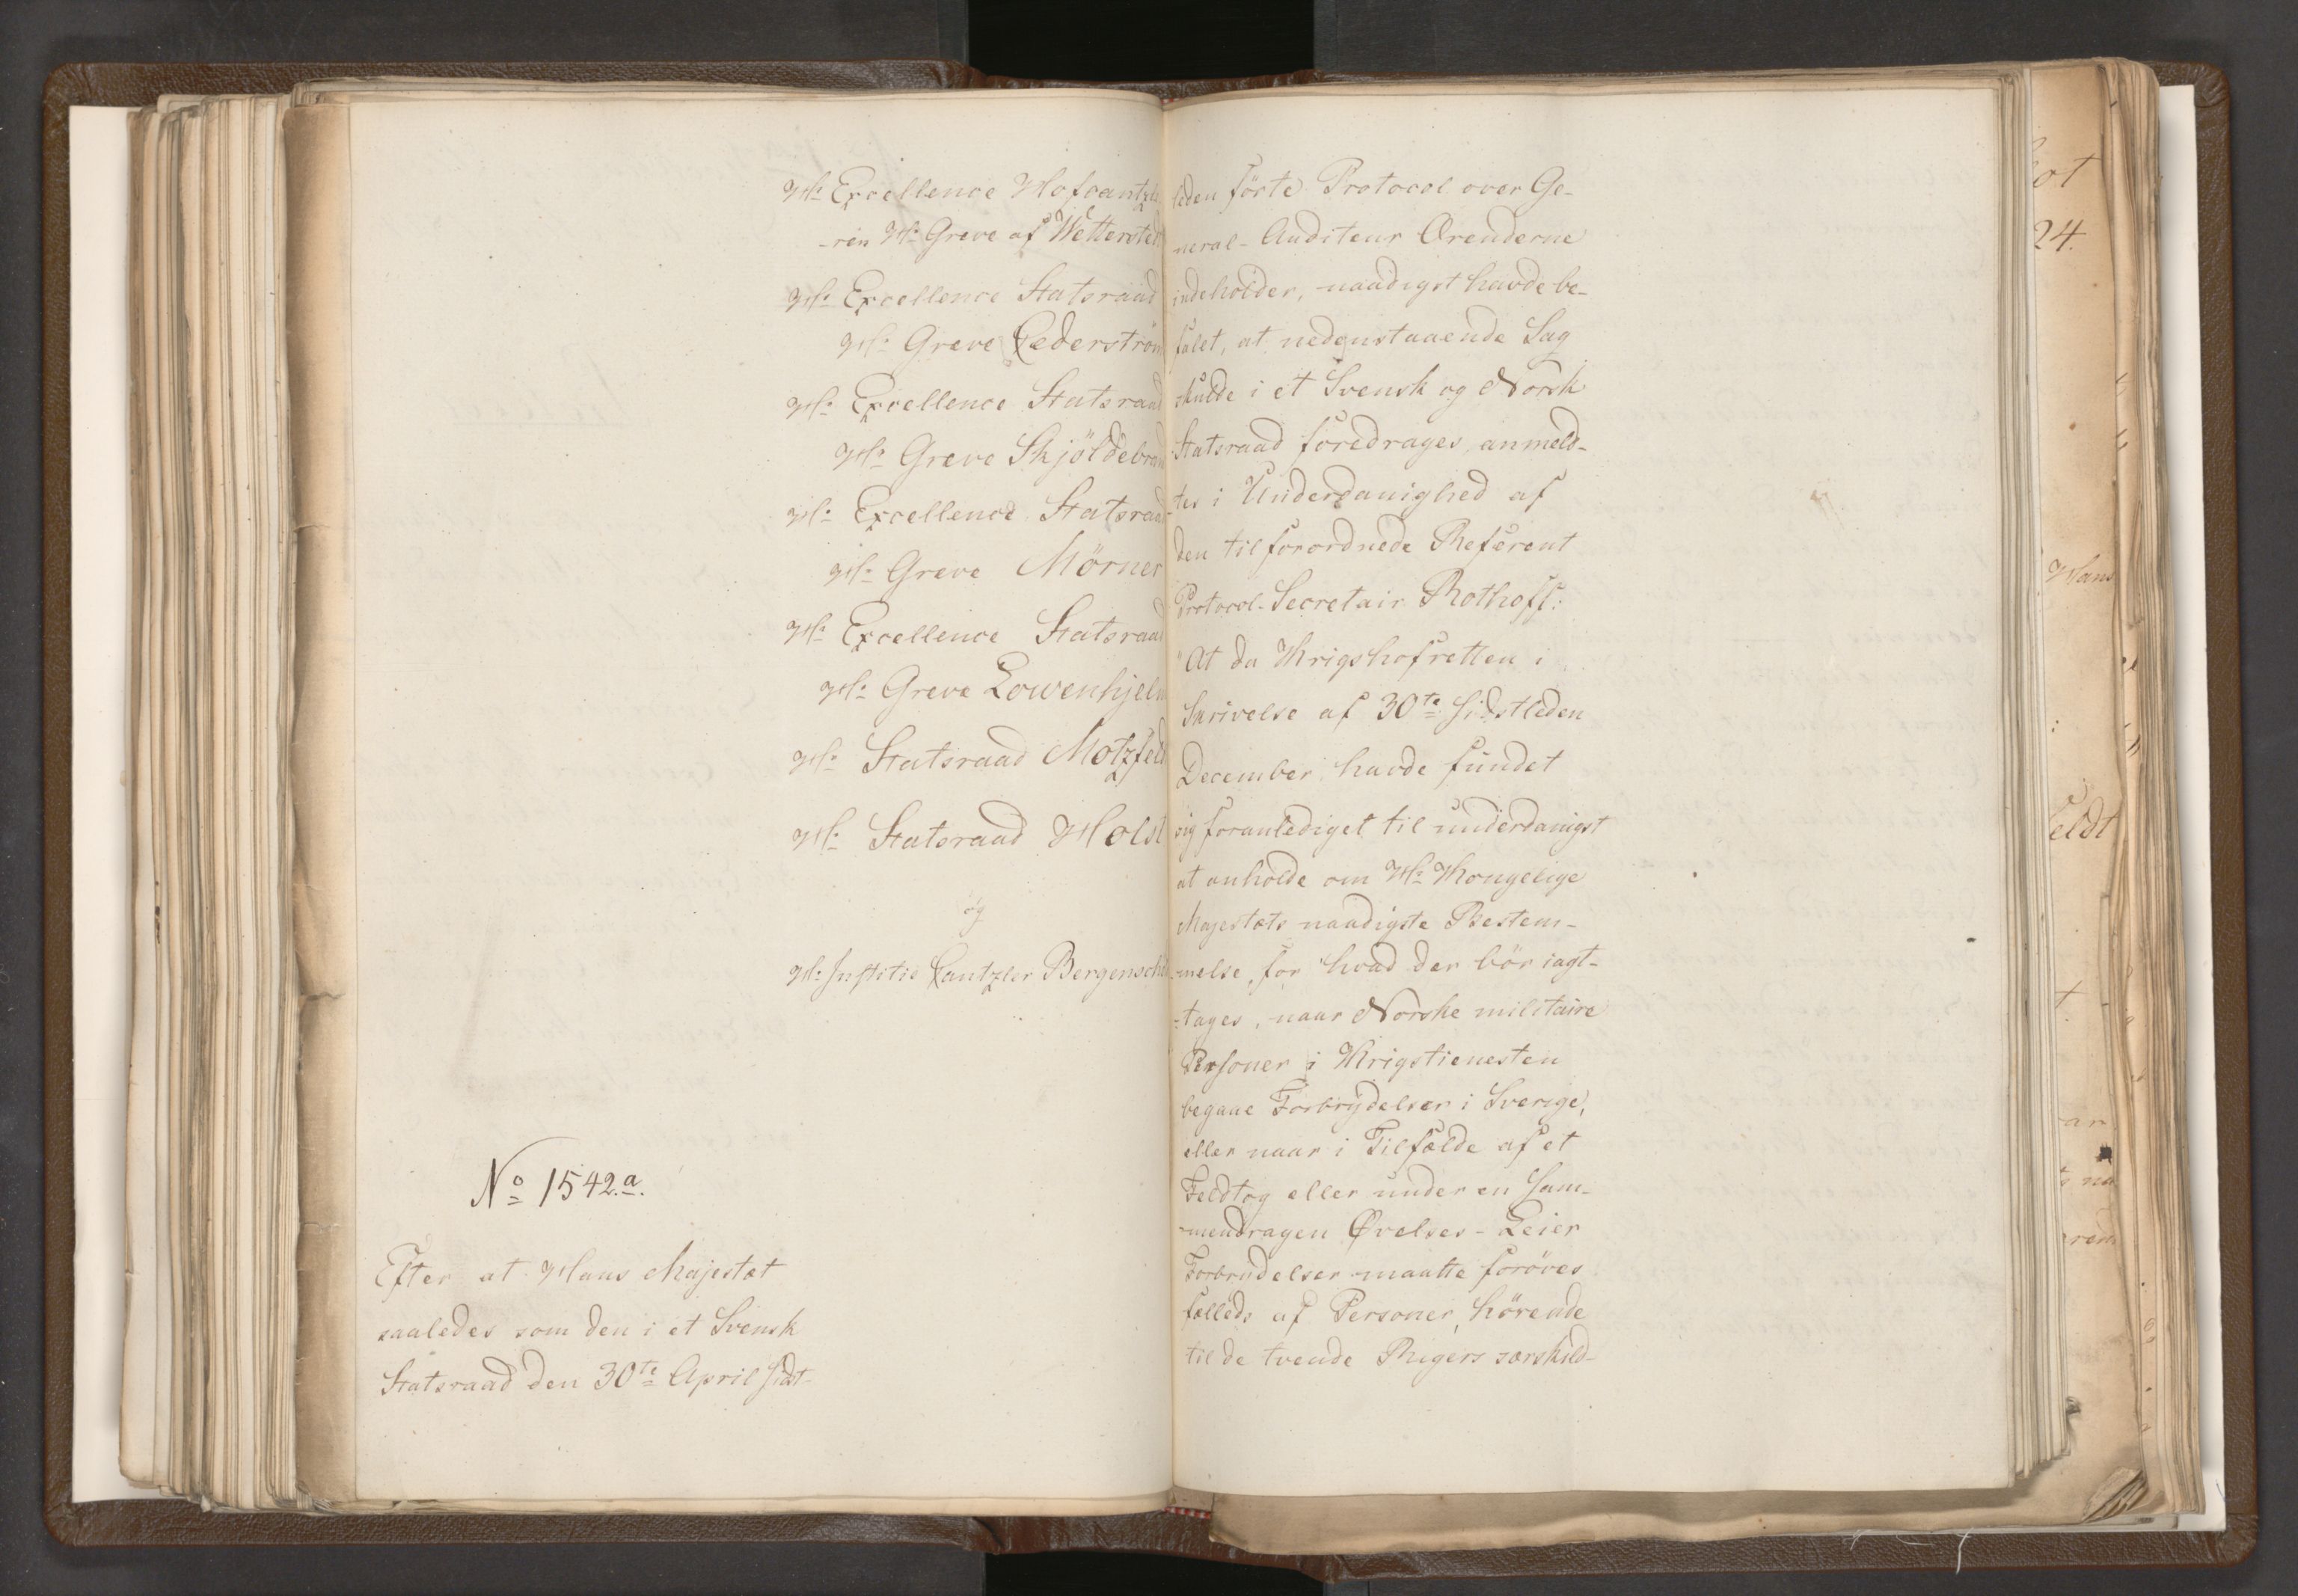 Hs Excellence Hofcantzle
-ren Hr Greve af Wettersted
Hs Excellence Statsraad
Hr Greve Cederström
Hs Excellence Statsraad
Hr Greve Skjöldebrand
Hs Excellence Statsraad
Hr Greve Mörner
Hs Excellence Statsraad
Hr Greve Lowenhjelm
Hr Statsraad Motzfeld
Hr Statsraad Holst
og
Hr Justitie Cantzler Bergenschi
No 1542.a.
Efter at Hans Majestæt
saaledes som den i et Svensk
Statsraad den 30te April sidst-
leden förte Protocol over Ge-
neral-Auditeur Ærenderne
indeholder, naadigst havde be-
falet, at nedenstaaende Sag
skulde i et Svensk og Norsk
Statsraad föredrages, anmeld-
-tes i Underdanighed af
den tilforordnede Referent
Protocol-Secretair Rothoff:
"At da Krigshofretten i
Skrivelse af 30te sidstleden
December havde fundet
sig foranlediget til underdanigst
at anholde om Hs Kongelige
Majestæts naadigste Bestem-
-melse, for hvad der bör iagt-
-tages, naar Norske militaire
Personer i Krigstienesten
begaae Forbrydelser i Sverige,
eller naar i Tilfælde af et
Feldtog eller under en sam-
-mendragen Øvelses-Leier
Forbrydelser maatte foröves
fælleds af Personer, hörende
til de tvende Rigers særskild-
ot
24.
Hans
feldt